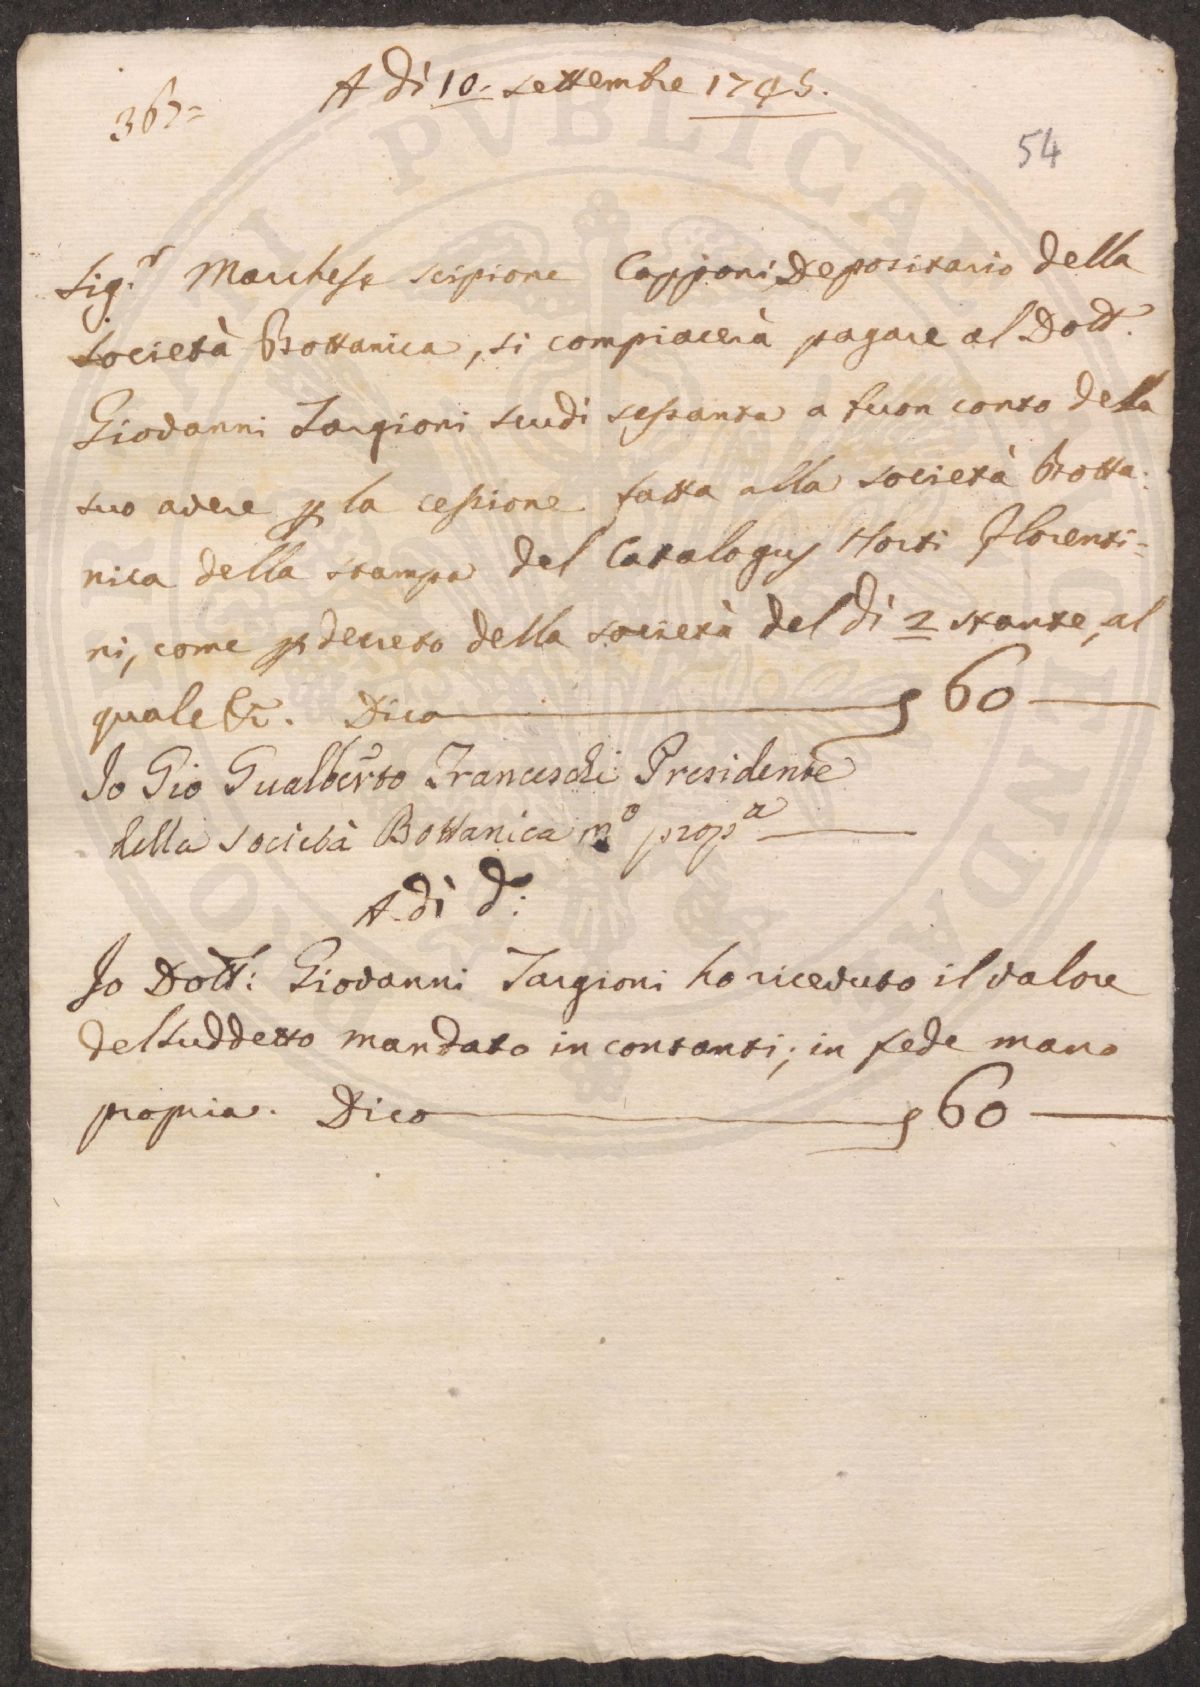 A dì 10. settembre 1745.
367=
54
Sig.r Marchese Scipione Capponi Depositario della
Società Bottanica, si compiacerà pagare al Dott.
Giovanni Targioni scudi sessanta a buon conto del
suo avere p la cessione fatta alla Società Botta:
nica della stampa del Catalogus Horti Florenti=
ni, come p decreto della Società del dì 2 stante, al
quale &c. Dico 60
Io Gio Gualberto Franceschi Presidente
della Società Bottanica mo propa
A dì do:
Io Dott: Giovanni Targioni ho ricevuto il valore
del suddetto mandato in contanti; in fede mano
propria. Dico 60